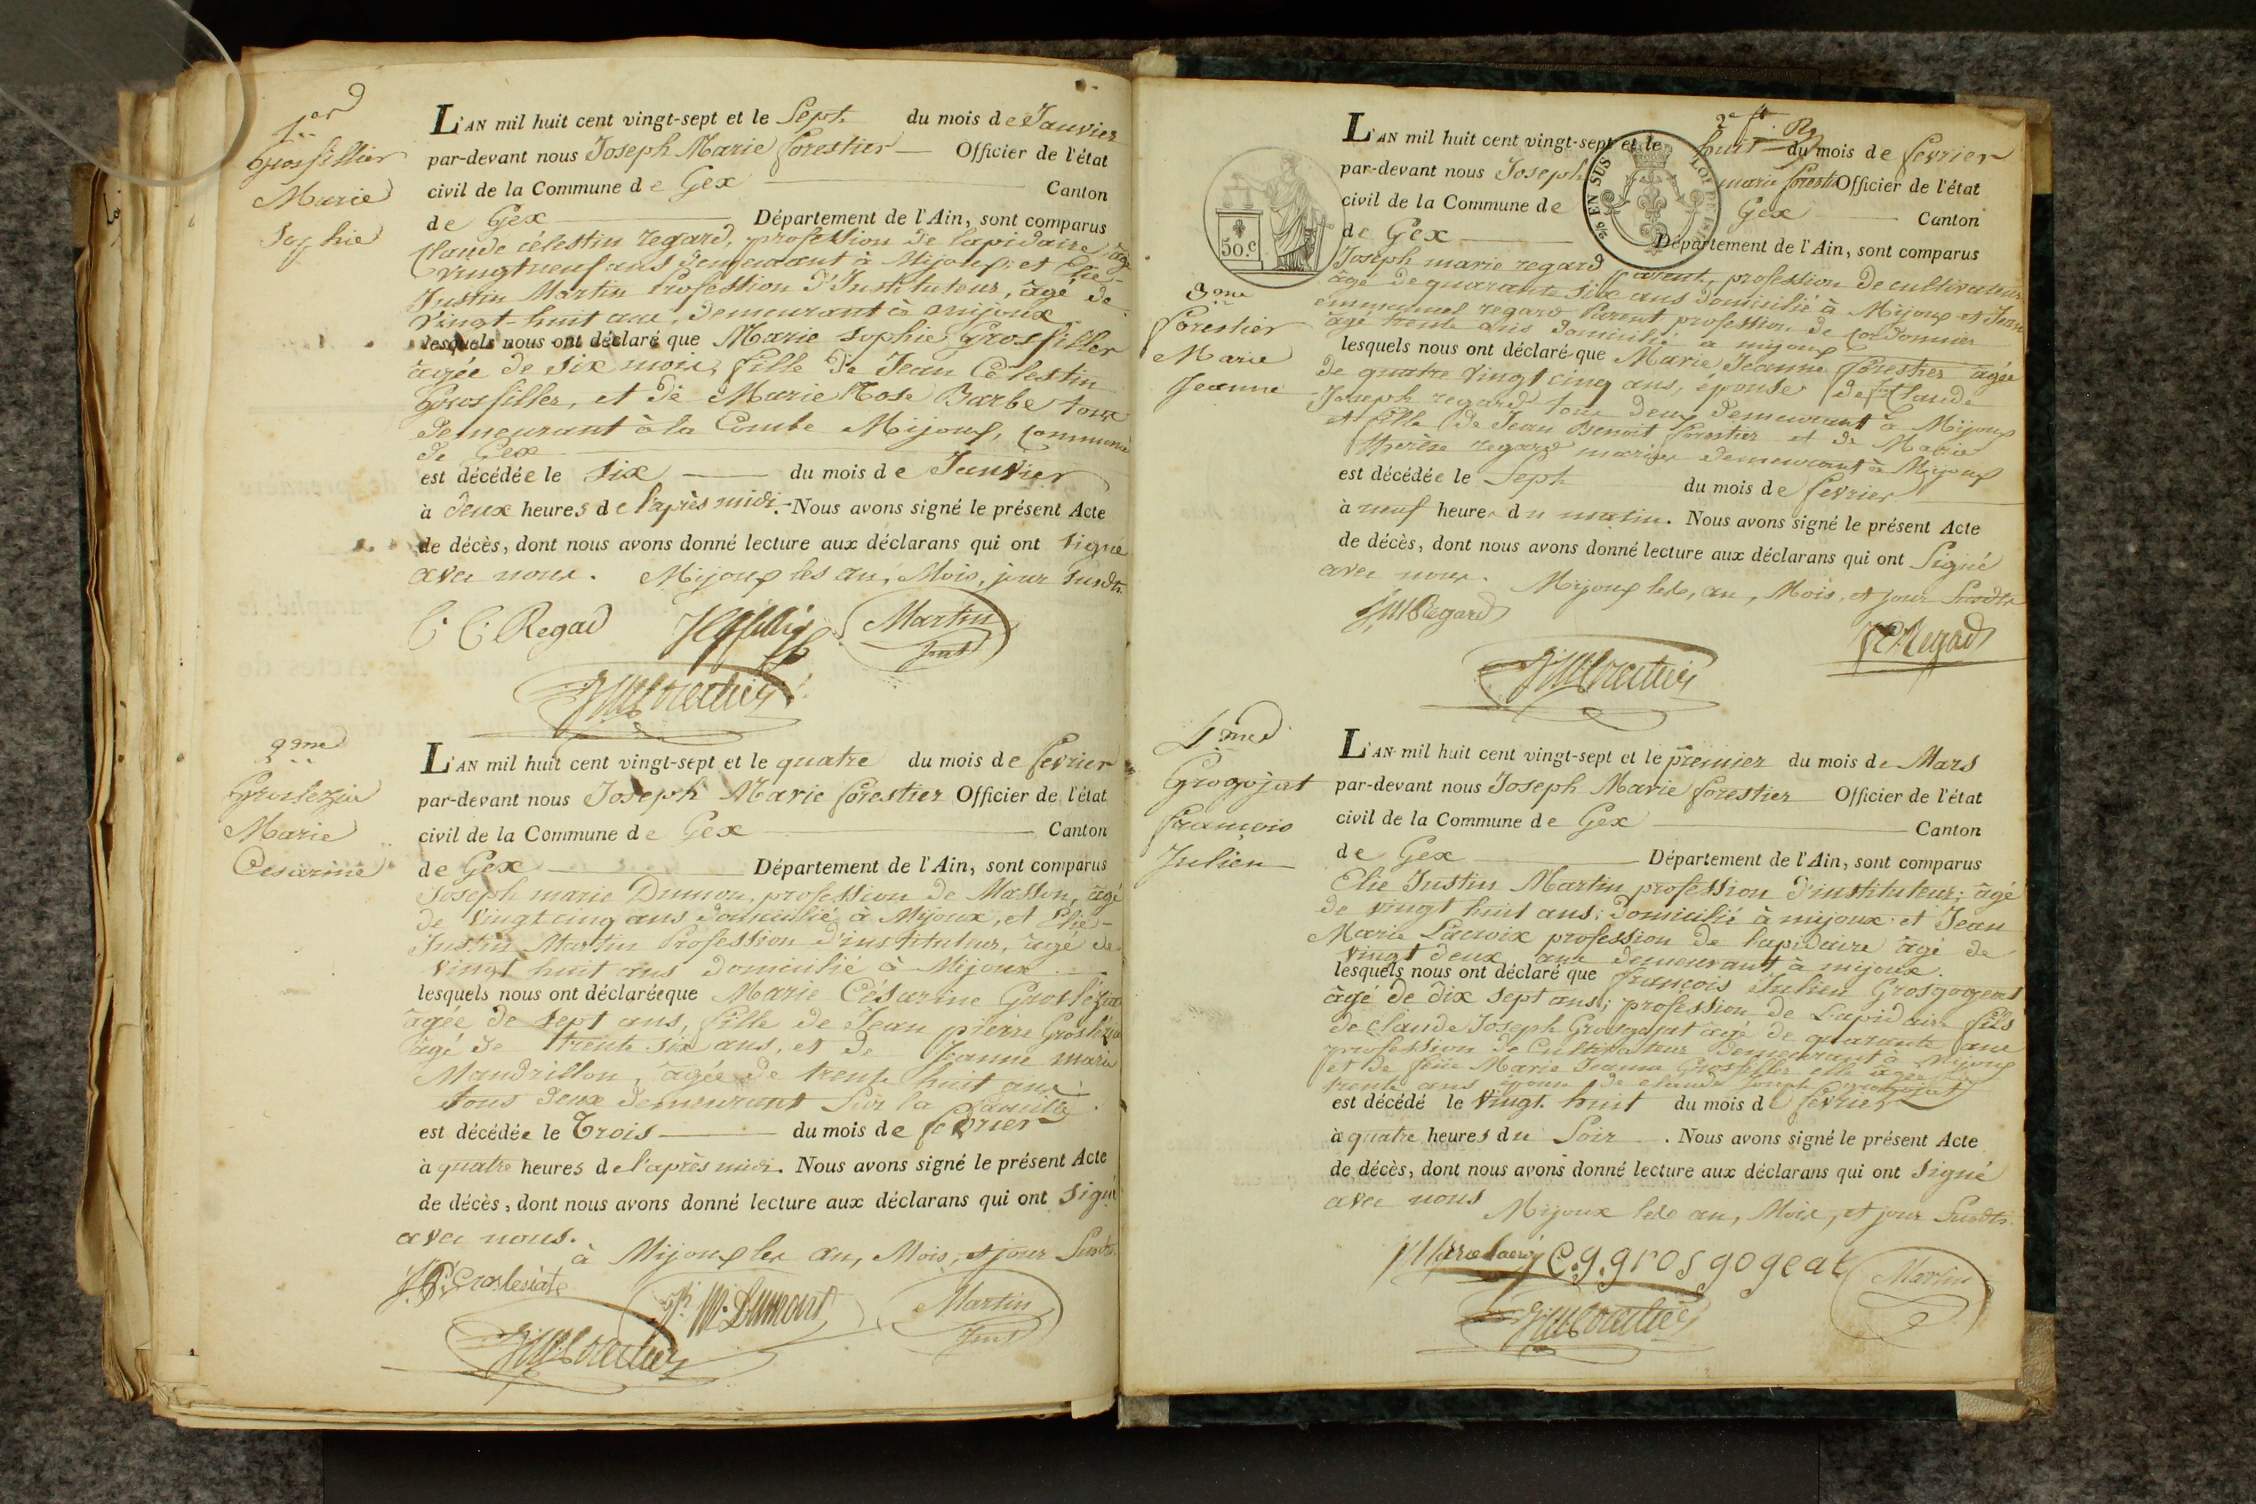 1er
Grosfiller
Marie
Sophie
L'AN mil huit cent vingt-sept et le Sept du mois de Janvier
par-devant nous Joseph Marie forestier Officier de l'état
civil de la Commune de Gex Canton
de Gex Département de l'Ain, sont comparus
Claude célestin regard, profession de lapidaire, âgé
vingt neuf ans demeurant à Mijoux; et Elie-
Justin Martin Profession d'Instituteur, âgé de
Vingt-huit ans, demeurant à mijoux
lesquels nous ont déclaré que Marie Sophie Grosfiller
âgée de six mois, fille de Jean Célestin
Grosfiller, et de Marie Rose Barbe tous
demeurant à la Combe Mijoux, Commune
de Gex
est décédée le six du mois de Janvier
à deux heures de l'après midi. Nous avons signé le présent Acte
de décès, dont nous avons donné lecture aux déclarans qui ont signé
avec nous. Mijoux les an, Mois, jour susdts
C. C. Regad Martin
2eme
Groslezia
Marie
Cesarine
L'AN mil huit cent vingt-sept et le quatre du mois de fevrier
par-devant nous Joseph Marie forestier Officier de l'état
civil de la Commune de Gex Canton
de Gex Département de l'Ain, sont comparus
Joseph marie Dumon, profession de Masson, âgé
de Vingt cinq ans domicilié à Mijoux, et Elie-
Justin Martin Profession d'instituteur, âgé de
vingt huit ans domicilié à Mijoux
lesquels nous ont déclarée que Marie Césarine Groslézia
âgée de sept ans, fille de Jean pierre Groslézia
âgé de trente six ans, et de Jeanne marie
Mandrillon, âgée de trente huit ans
tous deux demeurant Sur la
est décédée le Trois du mois de fevrier
à quatre heures de l'après midi. Nous avons signé le présent Acte
de décès, dont nous avons donné lecture aux déclarans qui ont signé
avec nous.
à Mijoux les an, Mois, et jour Susdts
J. P. Groslesiat Jh. M. Dumont Martin
50.c
EN SUS
2e ft
3eme
Forestier
Marie
Jeanne
L'AN mil huit cent vingt-sept et le huit du mois de fevrier
par-devant nous Joseph marie forestier Officier de l'état
civil de la Commune de Gex Canton
de Gex Département de l'Ain, sont comparus
Joseph marie regard parent, profession de cultivateur
âgé de quarante six ans domicilié à Mijoux et Jean
emmanuel regard Parent profession de Cordonnier
âgé trente ans domicilié à mijoux
lesquels nous ont déclaré que Marie Jeanne forestier âgée
de quatre vingt cinq ans, épouse de Claude
Joseph regard tous deux demeurant à Mijoux
et fille de Jean Benoit forestier et de Marie
thérèse regard mariés demeurant à Mijoux
est décédée le Sept du mois de fevrier
à neuf heures du matin. Nous avons signé le présent Acte
de décès, dont nous avons donné lecture aux déclarans qui ont Signé
avec nous. Mijoux lesd, an, Mois, et jour Susdts
J M Regard Regad
4eme
Grogojat
François
Julien
L'AN mil huit cent vingt-sept et le premier du mois de Mars
par-devant nous Joseph Marie forestier Officier de l'état
civil de la Commune de Gex Canton
de Gex Département de l'Ain, sont comparus
Elie Justin Martin profession d'instituteur; âgé
de vingt huit ans; domicilié à mijoux et Jean
Marie Lacroix profession de lapidaire âgé de
vingt deux ans demeurant à mijoux.
lesquels nous ont déclaré que françois Julien Grosgogeat
âgé de dix sept ans; profession de Lapidaire fils
de claude Joseph Grosgojat âgé de quarante ans
profession de Cultivateur demeurant à Mijoux
et de feüe Marie Jeanne Grosfiller elle âgée
trente ans épouse de claude Joseph grosgojat
est décédé le vingt. huit du mois de fevrier
à quatre heures du Soir. Nous avons signé le présent Acte
de décès, dont nous avons donné lecture aux déclarans qui ont signé
avec nous Mijoux lesd an, Mois, et jour Susdts.
C. g. grosgogeat Martin